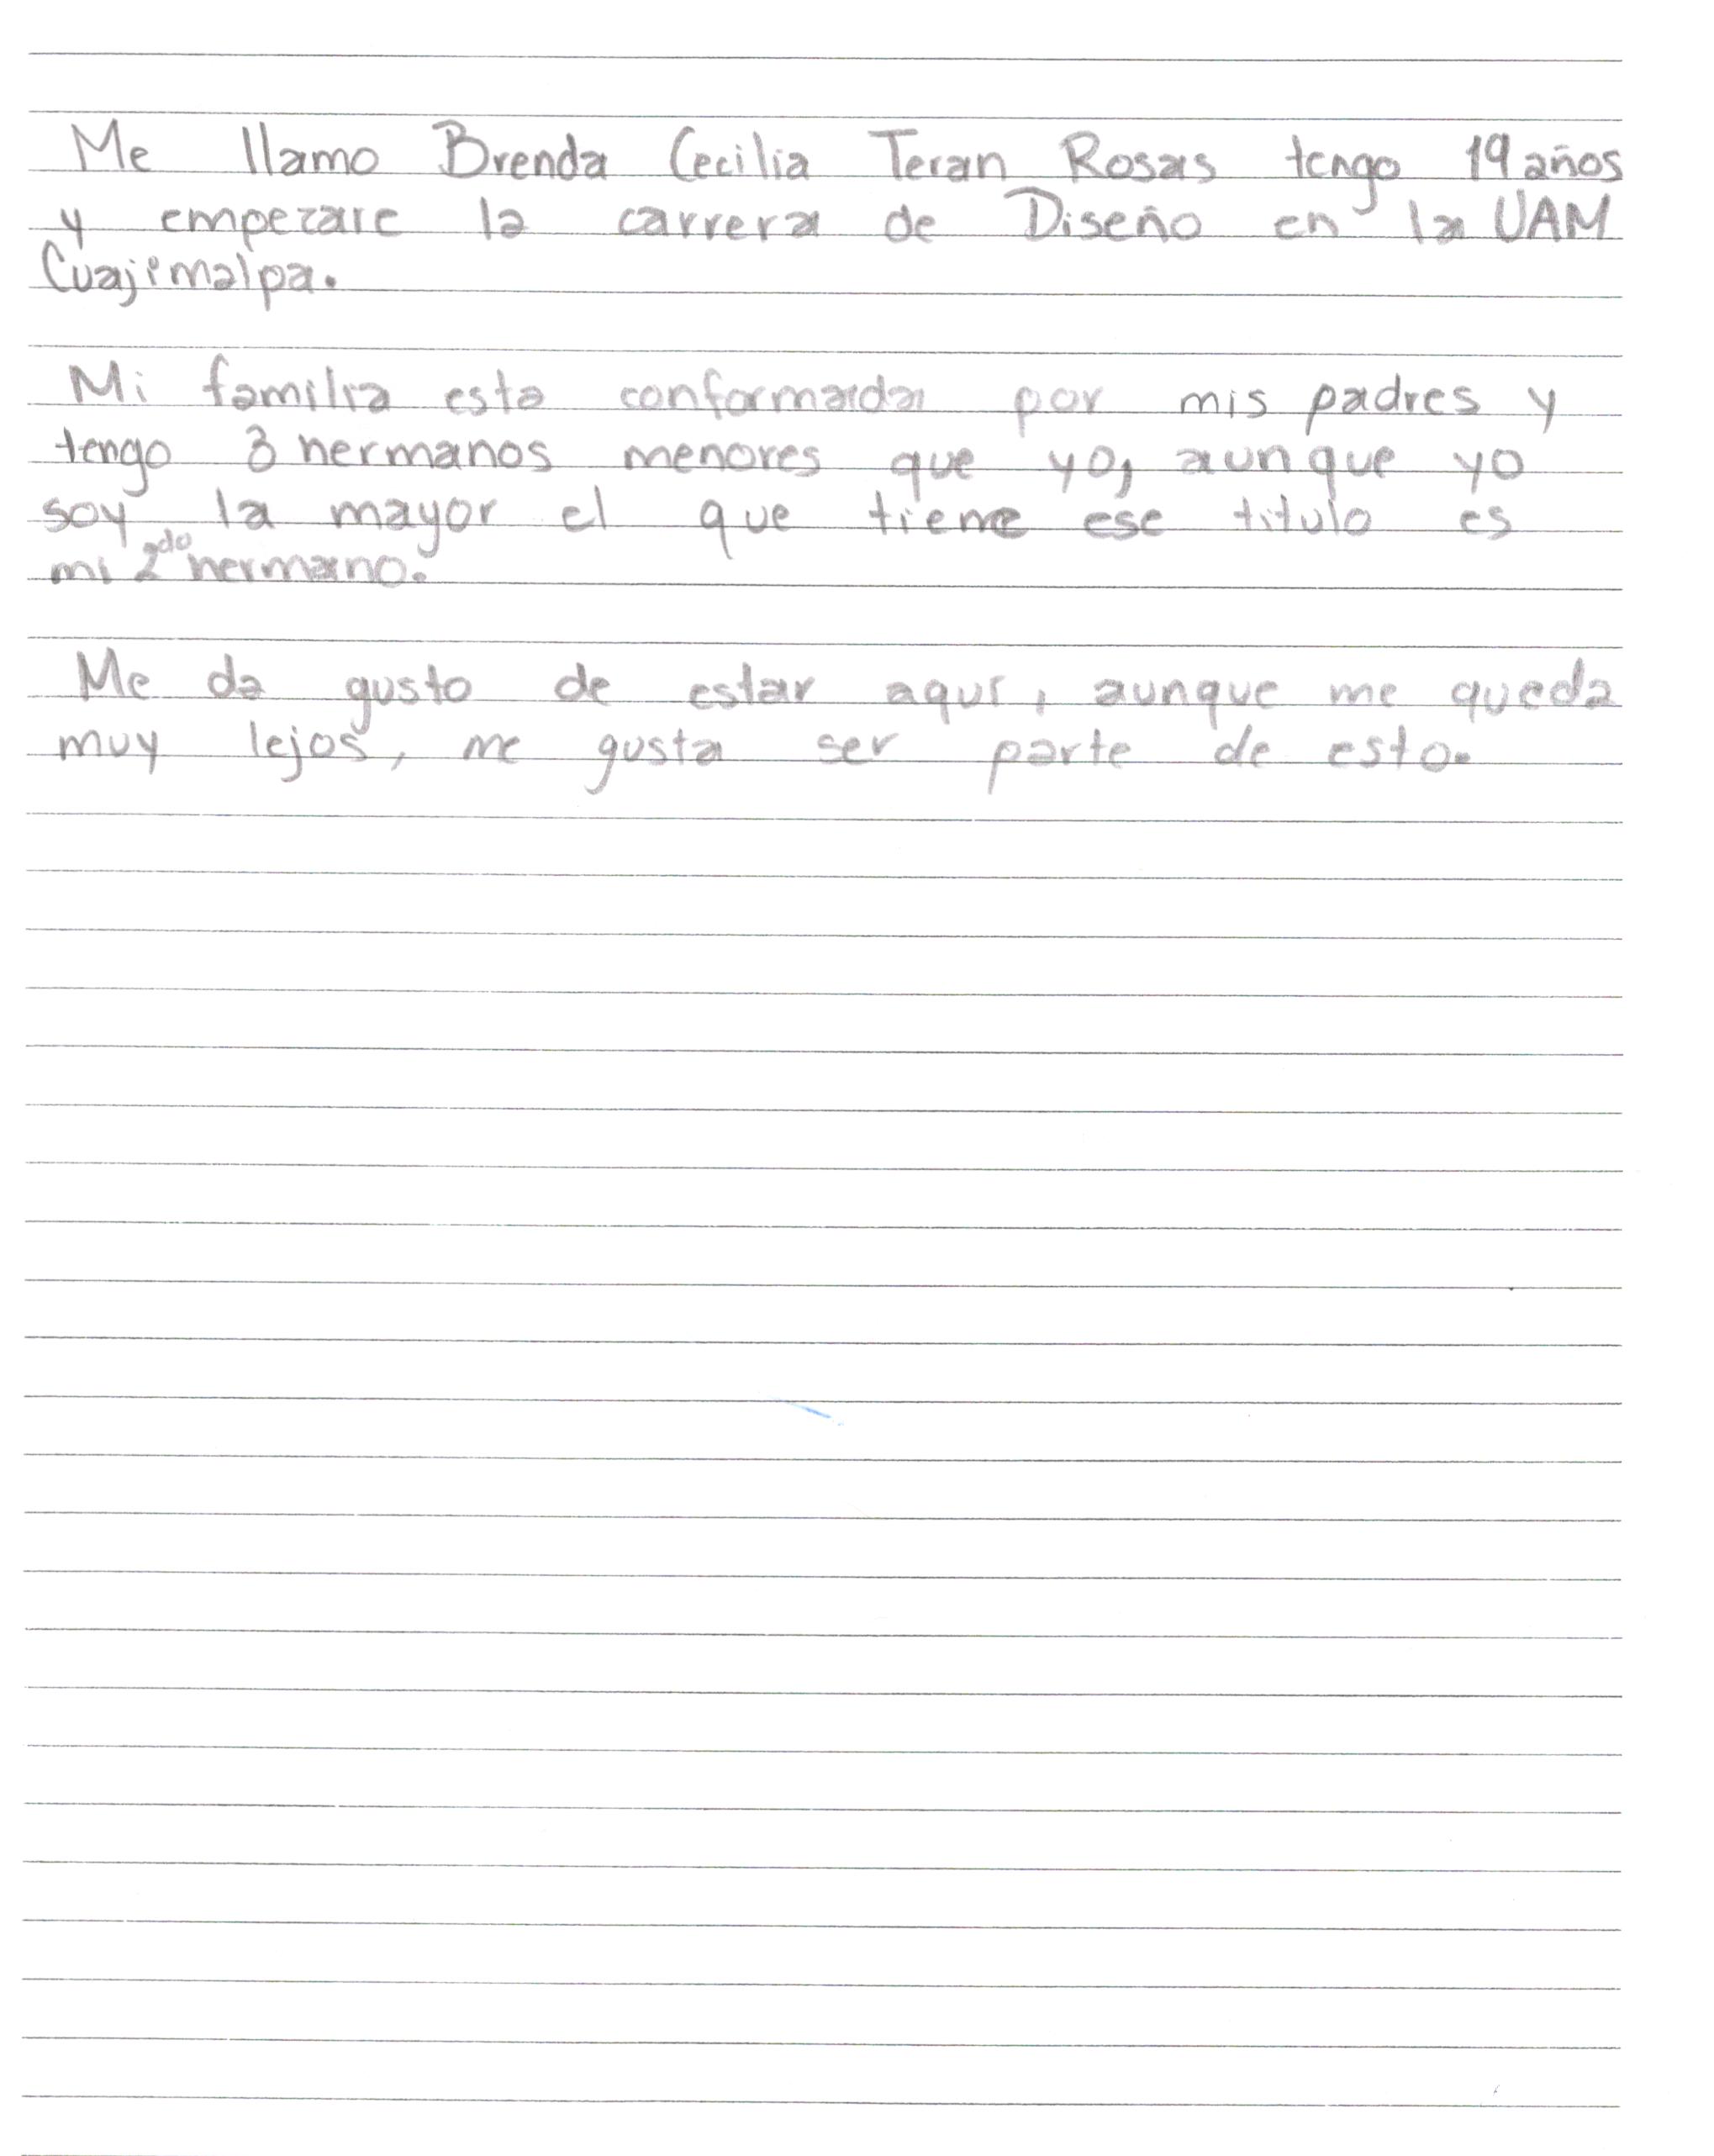 Me llamo Brenda Cecilia Teran Rosas tengo 19 años
y empezare la carrera de Diseño en la UAM
Cuajimalpa.
Mi familia esta conformada por mis padres y
tengo 3 hermanos menores que yo, aunque yo
soy la mayor el que tiene ese titulo es
mi 2do hermano.
Me da gusto de estar aquí, aunque me queda
muy lejos, me gusta ser parte de esto.